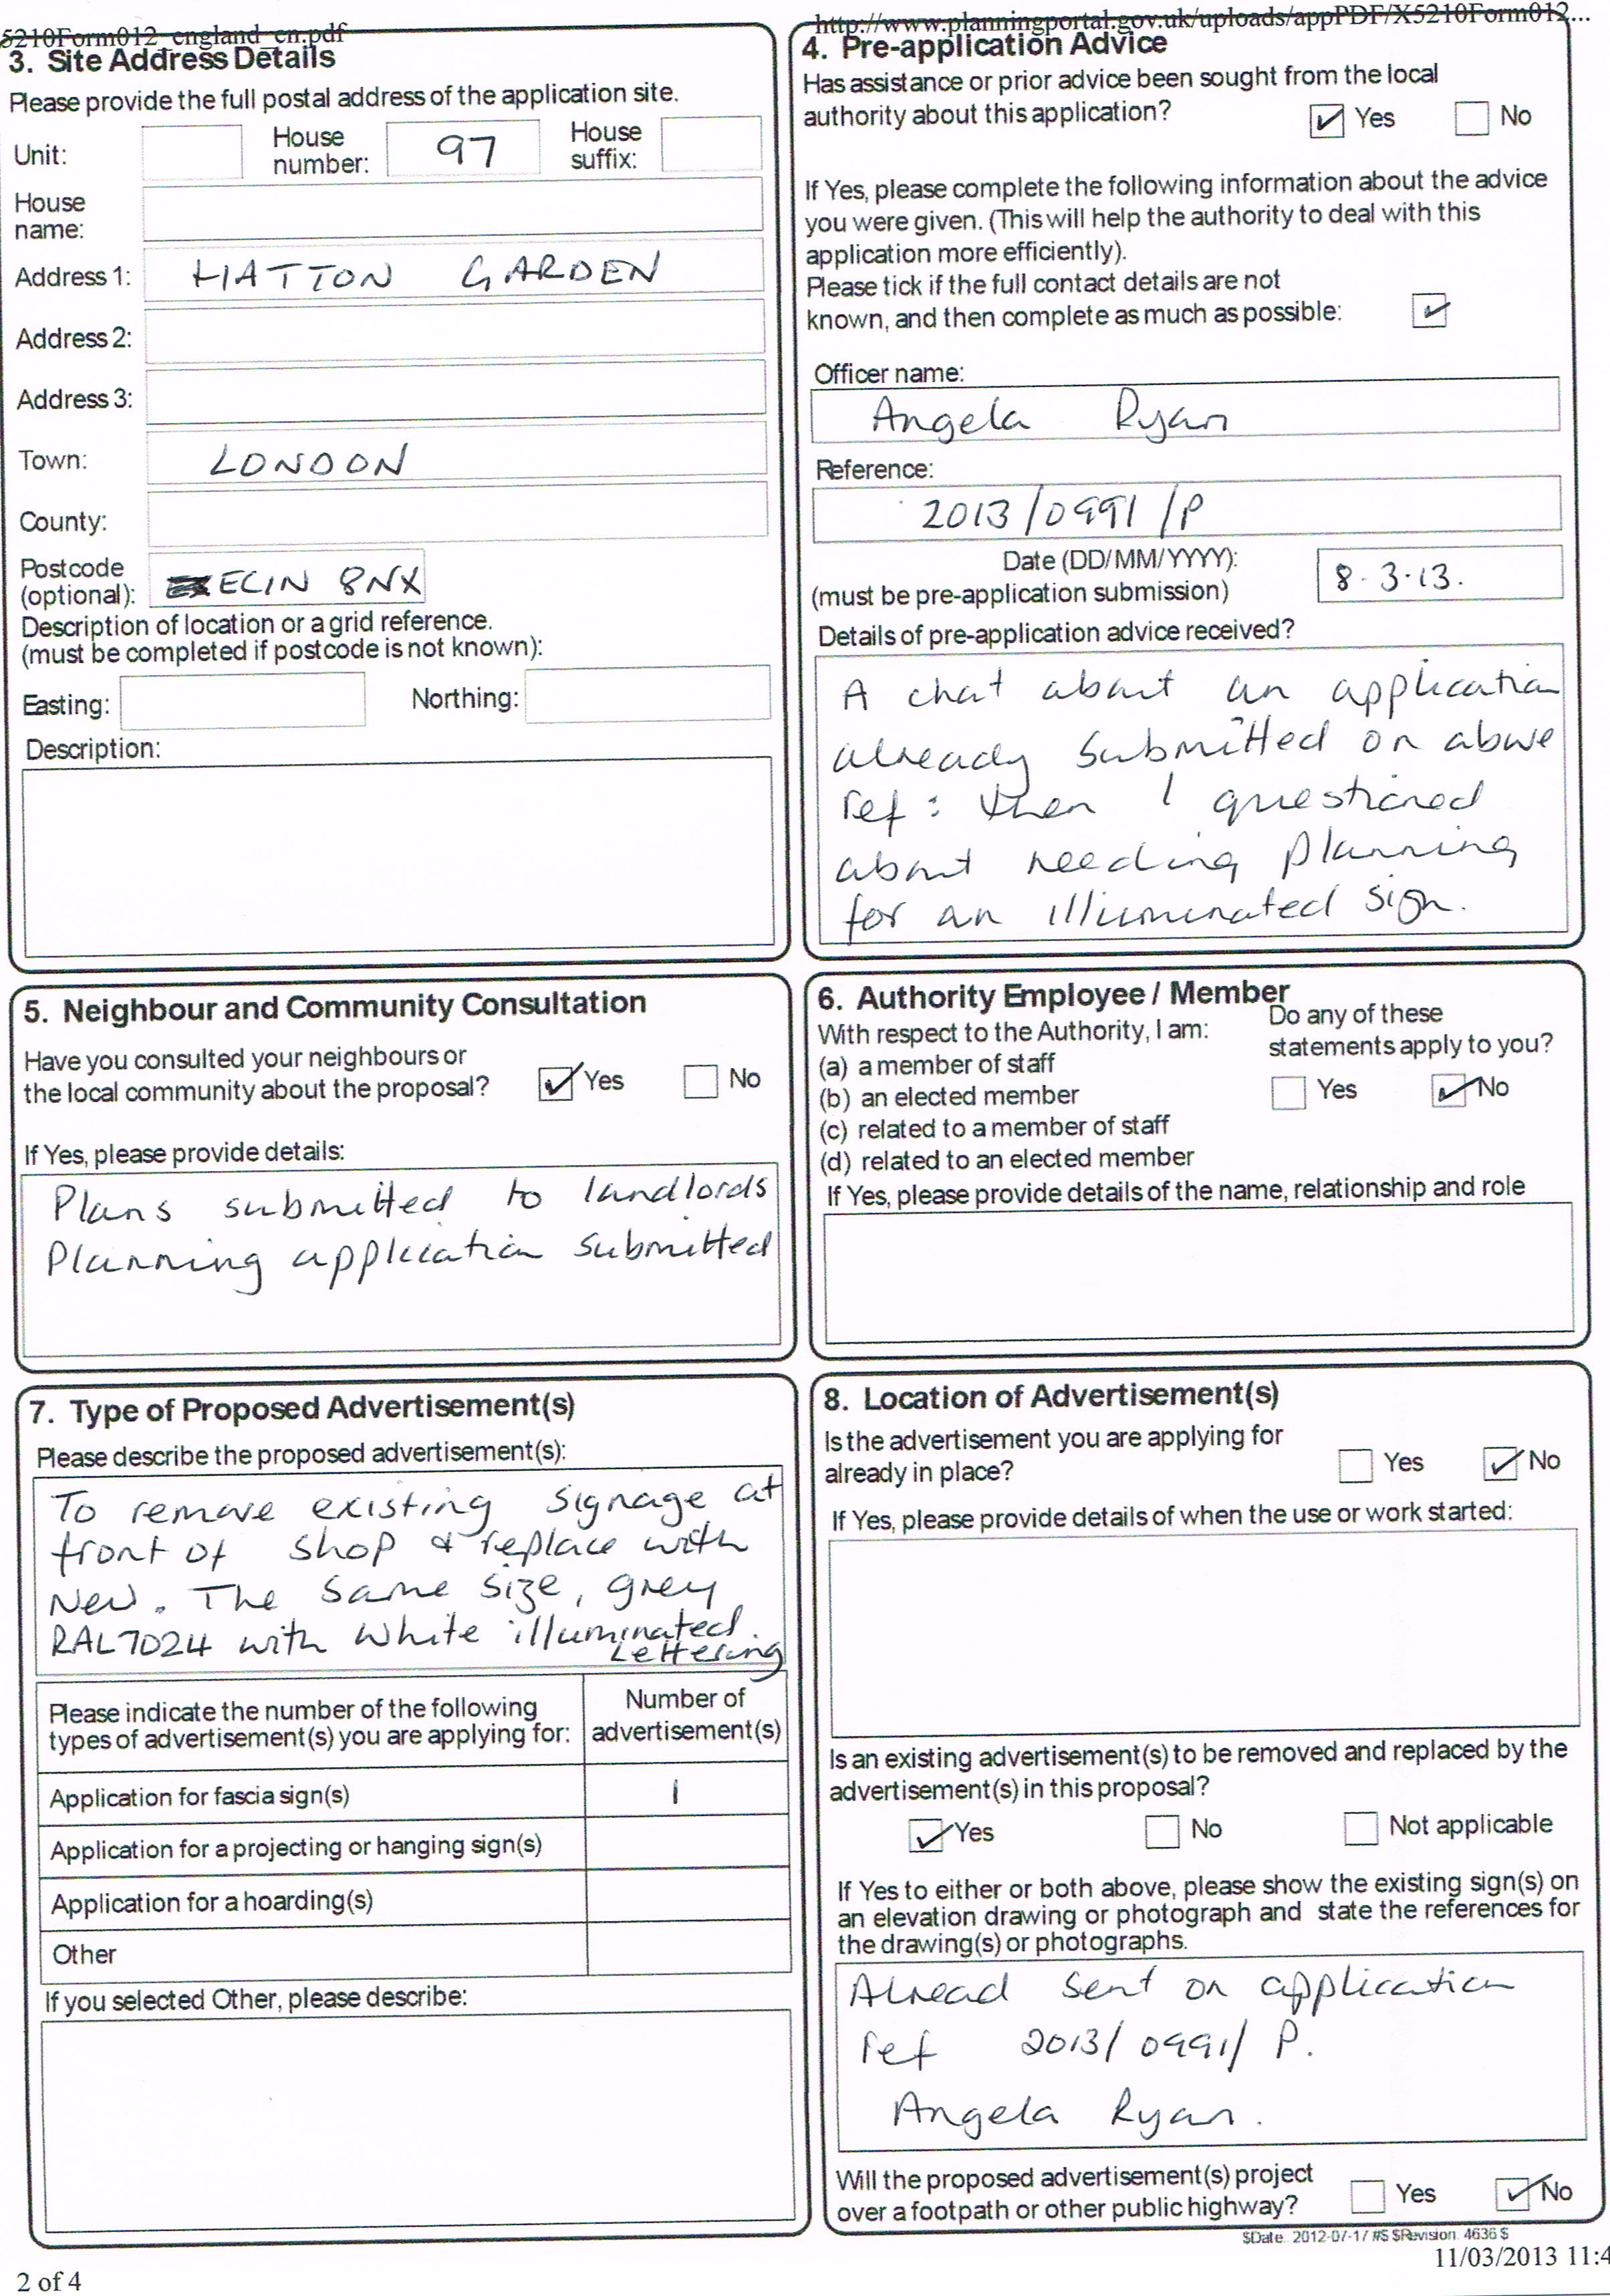 5210Form012_england_en.pdf
http://www.planningportal.gov.uk/uploads/appPDF/X5210Form012...
3. Site Address Details
Please provide the full postal address of the application site.
Unit:
House number: 97
House suffix:
House name:
Address 1: HATTON GARDEN
Address 2:
Address 3:
Town: LONDON
County:
Postcode (optional): EC1N 8NX
Description of location or a grid reference.
(must be completed if postcode is not known):
Easting:
Northing:
Description:
4. Pre-application Advice
Has assistance or prior advice been sought from the local
authority about this application? Yes No
If Yes, please complete the following information about the advice
you were given. (This will help the authority to deal with this
application more efficiently).
Please tick if the full contact details are not
known, and then complete as much as possible:
Officer name:
Angela Ryan
Reference:
2013/0991/P
Date (DD/MM/YYYY):
(must be pre-application submission)
8.3.13.
Details of pre-application advice received?
A chat about an application
already submitted on above
ref: then I questioned
about needing planning
for an illuminated sign.
5. Neighbour and Community Consultation
Have you consulted your neighbours or
the local community about the proposal? Yes No
If Yes, please provide details:
Plans submitted to landlords
Planning application submitted
6. Authority Employee / Member
With respect to the Authority, I am:
(a) a member of staff
(b) an elected member
(c) related to a member of staff
(d) related to an elected member
Do any of these
statements apply to you?
Yes No
If Yes, please provide details of the name, relationship and role
7. Type of Proposed Advertisement(s)
Please describe the proposed advertisement(s):
To remove existing signage at
front of shop & replace with
New. The same size, grey
RAL7024 with white illuminated.
Lettering
Please indicate the number of the following
types of advertisement(s) you are applying for:
Number of
advertisement(s)
Application for fascia sign(s) 1
Application for a projecting or hanging sign(s)
Application for a hoarding(s)
Other
If you selected Other, please describe:
8. Location of Advertisement(s)
Is the advertisement you are applying for
already in place? Yes No
If Yes, please provide details of when the use or work started:
Is an existing advertisement(s) to be removed and replaced by the
advertisement(s) in this proposal?
Yes No Not applicable
If Yes to either or both above, please show the existing sign(s) on
an elevation drawing or photograph and state the references for
the drawing(s) or photographs.
Alread sent on application
ref 2013/0991/P.
Angela Ryan.
Will the proposed advertisement(s) project
over a footpath or other public highway? Yes No
$Date: 2012-07-17 #$ $Revision: 4636 $
11/03/2013 11:4
2 of 4